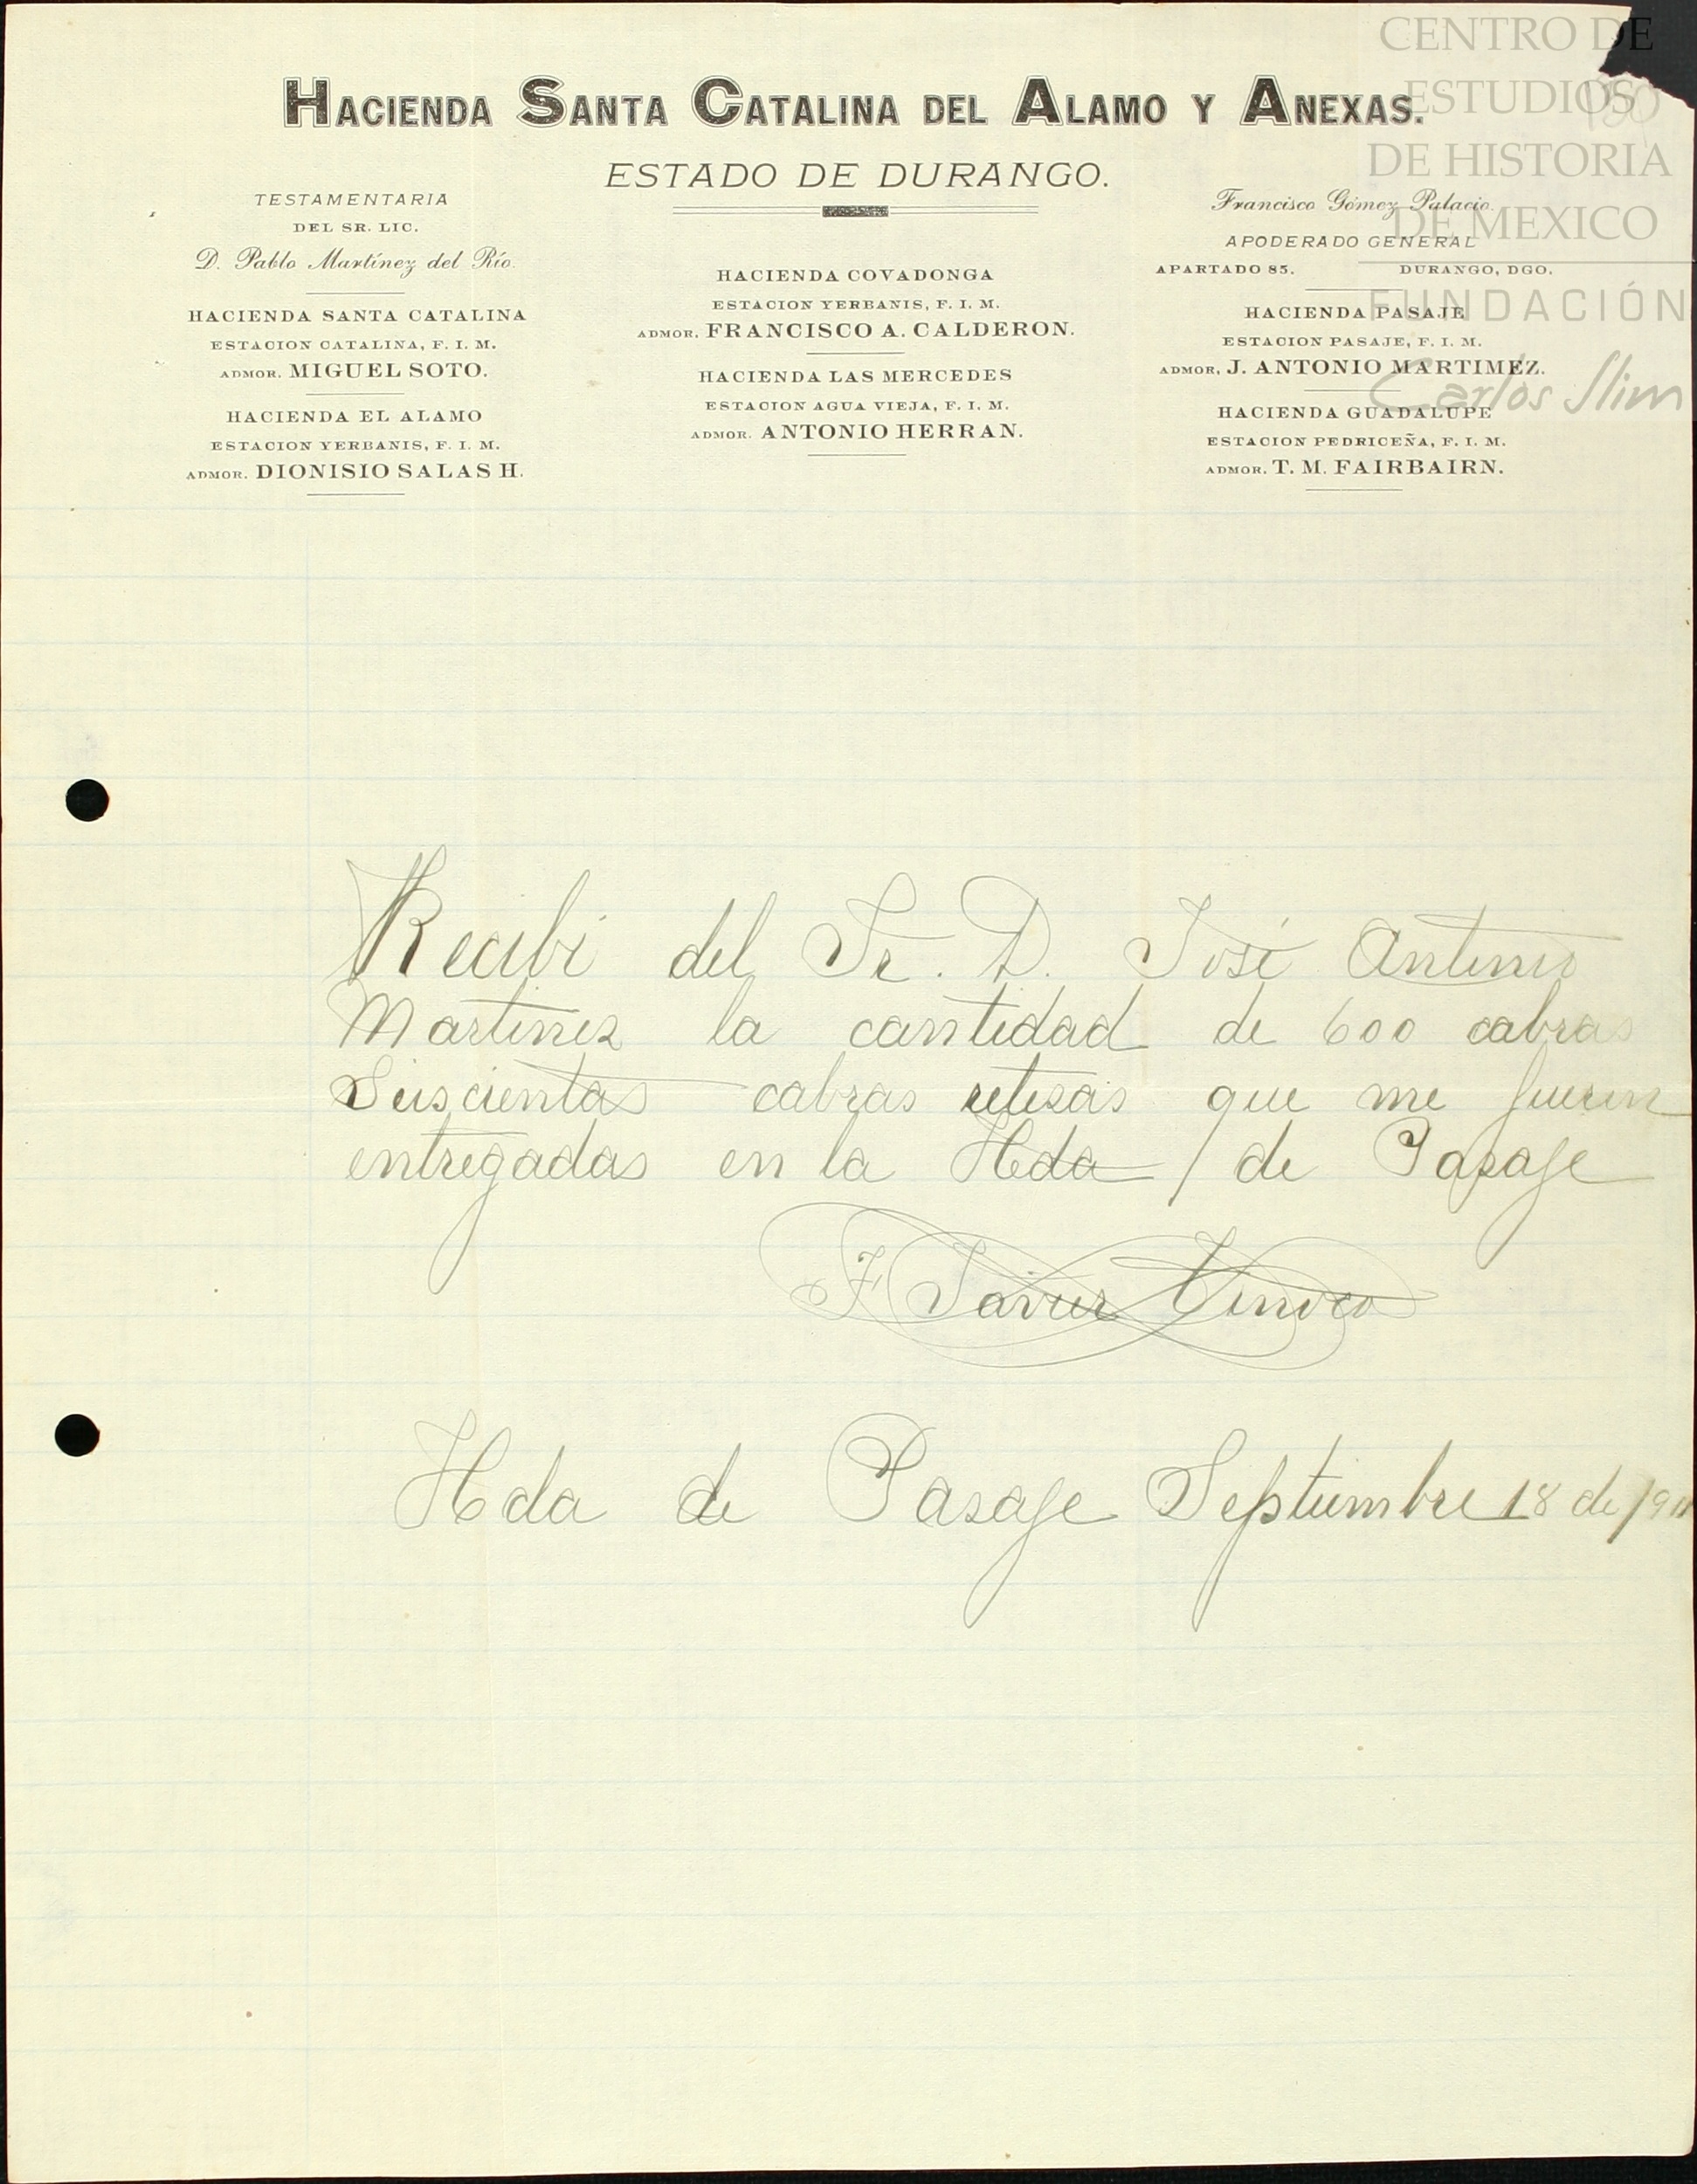 HACIENDA SANTA CATALINA DEL ALAMO Y ANEXAS.
ESTADO DE DURANGO.
TESTAMENTARIA
DEL SR. LIC.
D. Pablo Martínez del Río.
HACIENDA SANTA CATALINA
ESTACION CATALINA, F. I. M.
ADMOR. MIGUEL SOTO.
HACIENDA EL ALAMO
ESTACION YERBANIS, F. I. M.
ADMOR. DIONISIO SALAS H.
HACIENDA COVADONGA
ESTACION YERBANIS, F. I. M.
ADMOR. FRANCISCO A. CALDERON.
HACIENDA LAS MERCEDES
ESTACION AGUA VIEJA, F. I. M.
ADMOR. ANTONIO HERRAN.
Francisco Gómez Palacio.
APODERADO GENERAL
APARTADO 85. DURANGO, DGO.
HACIENDA PASAJE
ESTACION PASAJE, F. I. M.
ADMOR. J. ANTONIO MARTIMEZ.
HACIENDA GUADALUPE
ESTACION PEDRICEÑA, F. I. M.
ADMOR. T. M. FAIRBAIRN.
CENTRO DE
ESTUDIOS
DE HISTORIA
DE MEXICO
FUNDACIÓN
Carlos Slim
Recibí del Sr. D. José Antonio
Martinez la cantidad de 600 cabras
Seiscientas cabras que me fueron
entregadas en la Hda / de Pasaje
F Javier Tinoco
Hda de Pasaje Septiembre 18 de